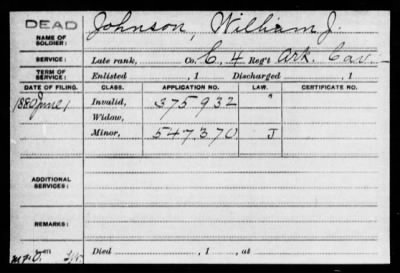 DEAD
NAME OF SOLDIER: Johnson, William J.
SERVICE: Late rank, Co. E, 4 Reg't Ark. Cav.
TERM OF SERVICE: Enlisted , 1 Discharged , 1
DATE OF FILING. CLASS. APPLICATION NO. LAW. CERTIFICATE NO.
1880 June 1 Invalid, 375932
Widow,
Minor, 547370 J
ADDITIONAL SERVICES:
REMARKS:
Died , 1 , at